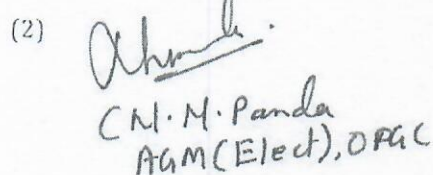 (2)
(N. M. Panda
AGM (Elect), OPGC